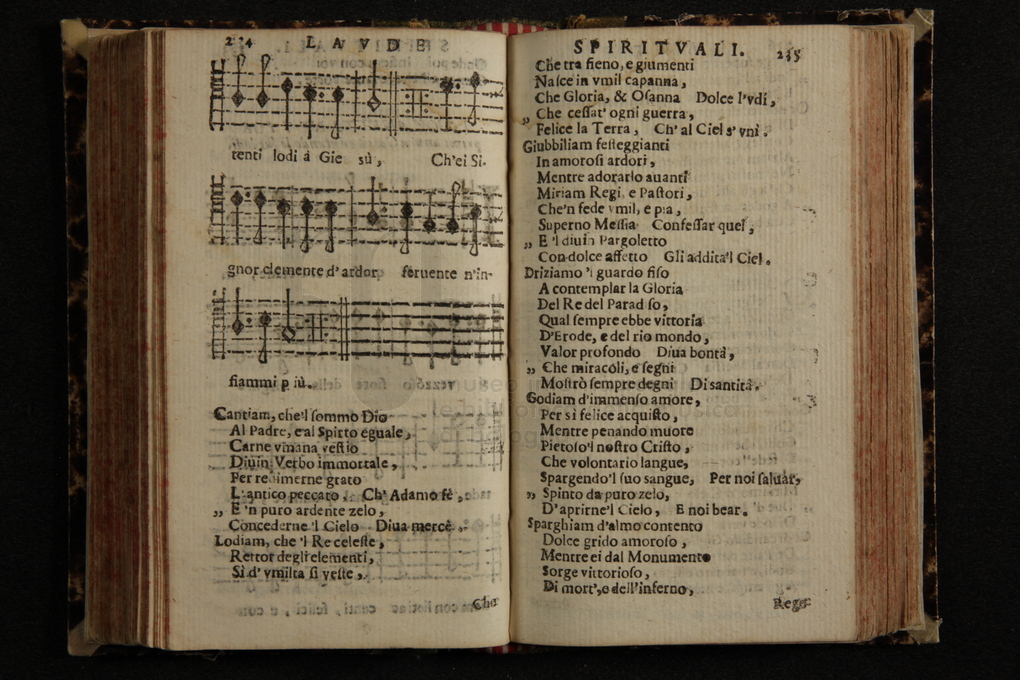 234 LAVDE
tenti lodi à Gie sù, Ch'ei Si-
gnor clemente d'ardor feruente n'in-
fiammi p iù.
Cantiam, che'l sommo Dio
Al Padre, e al Spirto eguale,
Carne vmana vestìo
Diuin Verbo immortale,
Per redimerne grato
L'antico peccato, Ch' Adamo fè,
„ E 'n puro ardente zelo,
Concederne 'l Cielo Diua mercè.
Lodiam, che 'l Re celeste,
Rettor degli elementi,
Sì d' vmiltà si veste,
Che
SPIRITVALI. 235
Che tra fieno, e giumenti
Nasce in vmil capanna,
Che Gloria, & Osanna Dolce l'vdì,
„ Che cessat' ogni guerra,
Felice la Terra, Ch' al Ciel s' vnì.
Giubbiliam festeggianti
In amorosi ardori,
Mentre adorarlo auanti
Miriam Regi, e Pastori,
Che'n fede vmil, e pia,
Superno Messia Confessar quel,
„ E 'l diuin Pargoletto
Con dolce affetto Gli addita'l Ciel.
Driziamo 'l guardo fiso
A contemplar la Gloria
Del Re del Paradiso,
Qual sempre ebbe vittoria
D'Erode, e del rio mondo,
Valor profondo Diua bontà,
„ Che miracoli, e segni
Mostrò sempre degni Di santità.
Godiam d'immenso amore,
Per sì felice acquisto,
Mentre penando muore
Pietoso'l nostro Cristo,
Che volontario langue,
Spargendo'l suo sangue, Per noi saluar,
„ Spinto da puro zelo,
D'aprirne'l Cielo, E noi bear.
Sparghiam d'almo contento
Dolce grido amoroso,
Mentre ei dal Monumento
Sorge vittorioso,
Di mort', e dell'inferno,
Rege